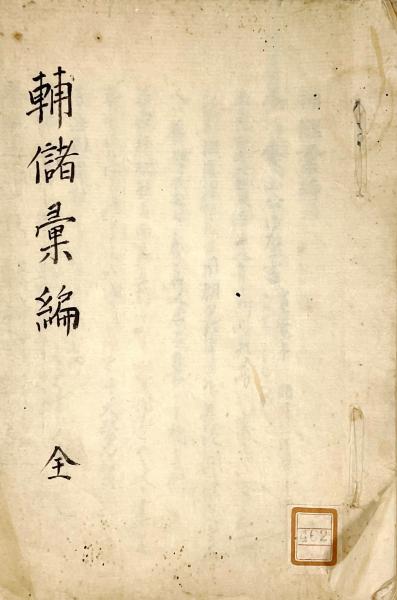 輔儲彙編
全